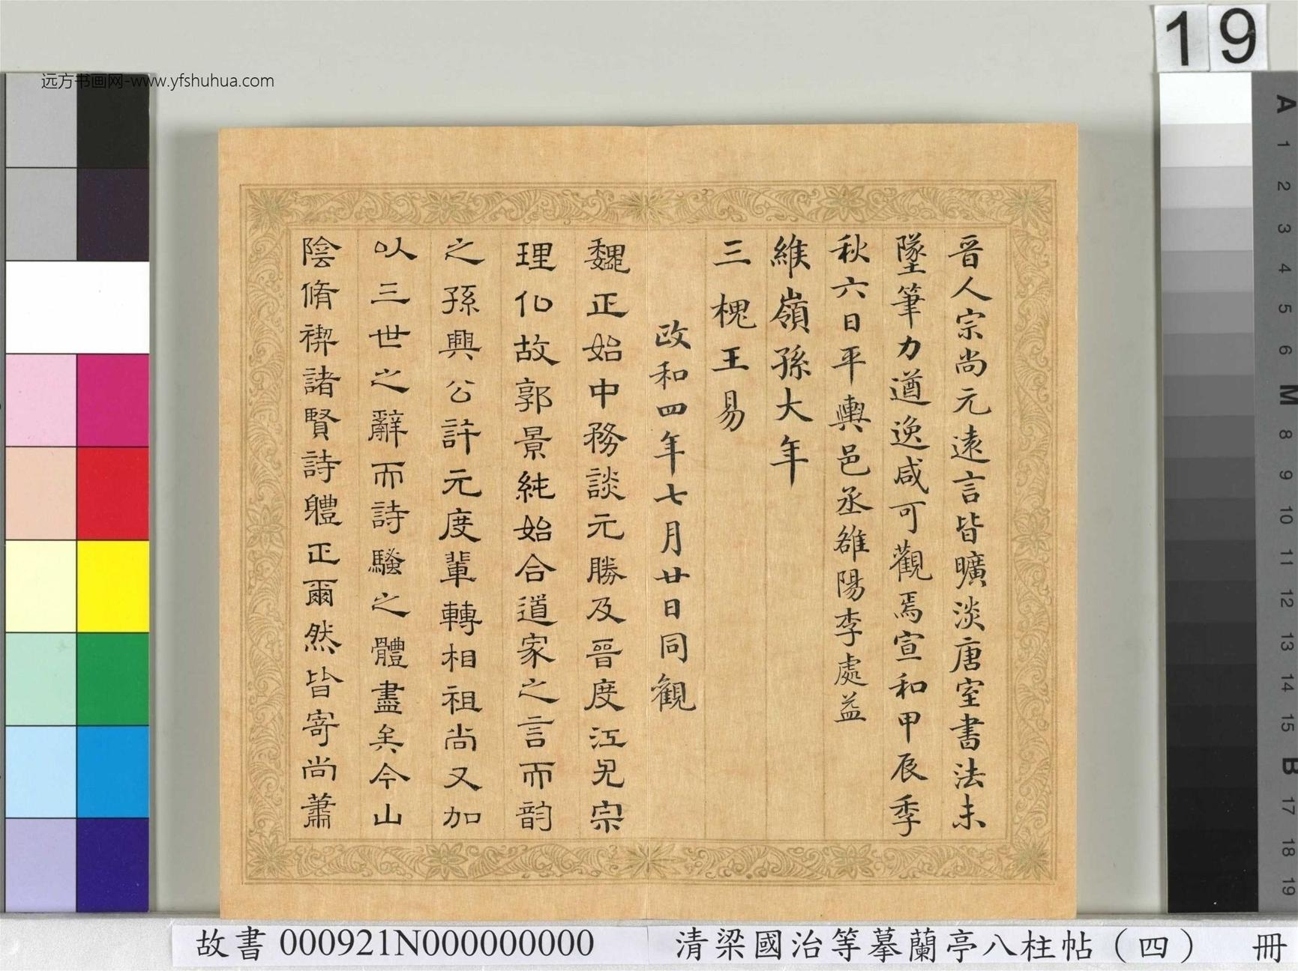 远方书画网-www.yfshuhua.com
19
晋人宗尚元遠言皆曠淡唐室書法未
墜筆力遒逸咸可觀焉宣和甲辰季
秋六日平輿邑丞雒陽李處益
緱嶺孫大年
三槐王易
政和四年七月廿日同觀
魏正始中務談元勝及晉度江尤宗
理化故郭景純始合道家之言而韵
之孫興公許元度輩轉相祖尚又加
以三世之辭而詩騷之體盡矣今山
陰脩禊諸賢詩軆正爾然皆寄尚蕭
A
1
2
3
4
5
6
M
8
9
10
11
12
13
14
15
B
17
18
19
故書 000921N000000000 清梁國治等摹蘭亭八柱帖（四） 冊